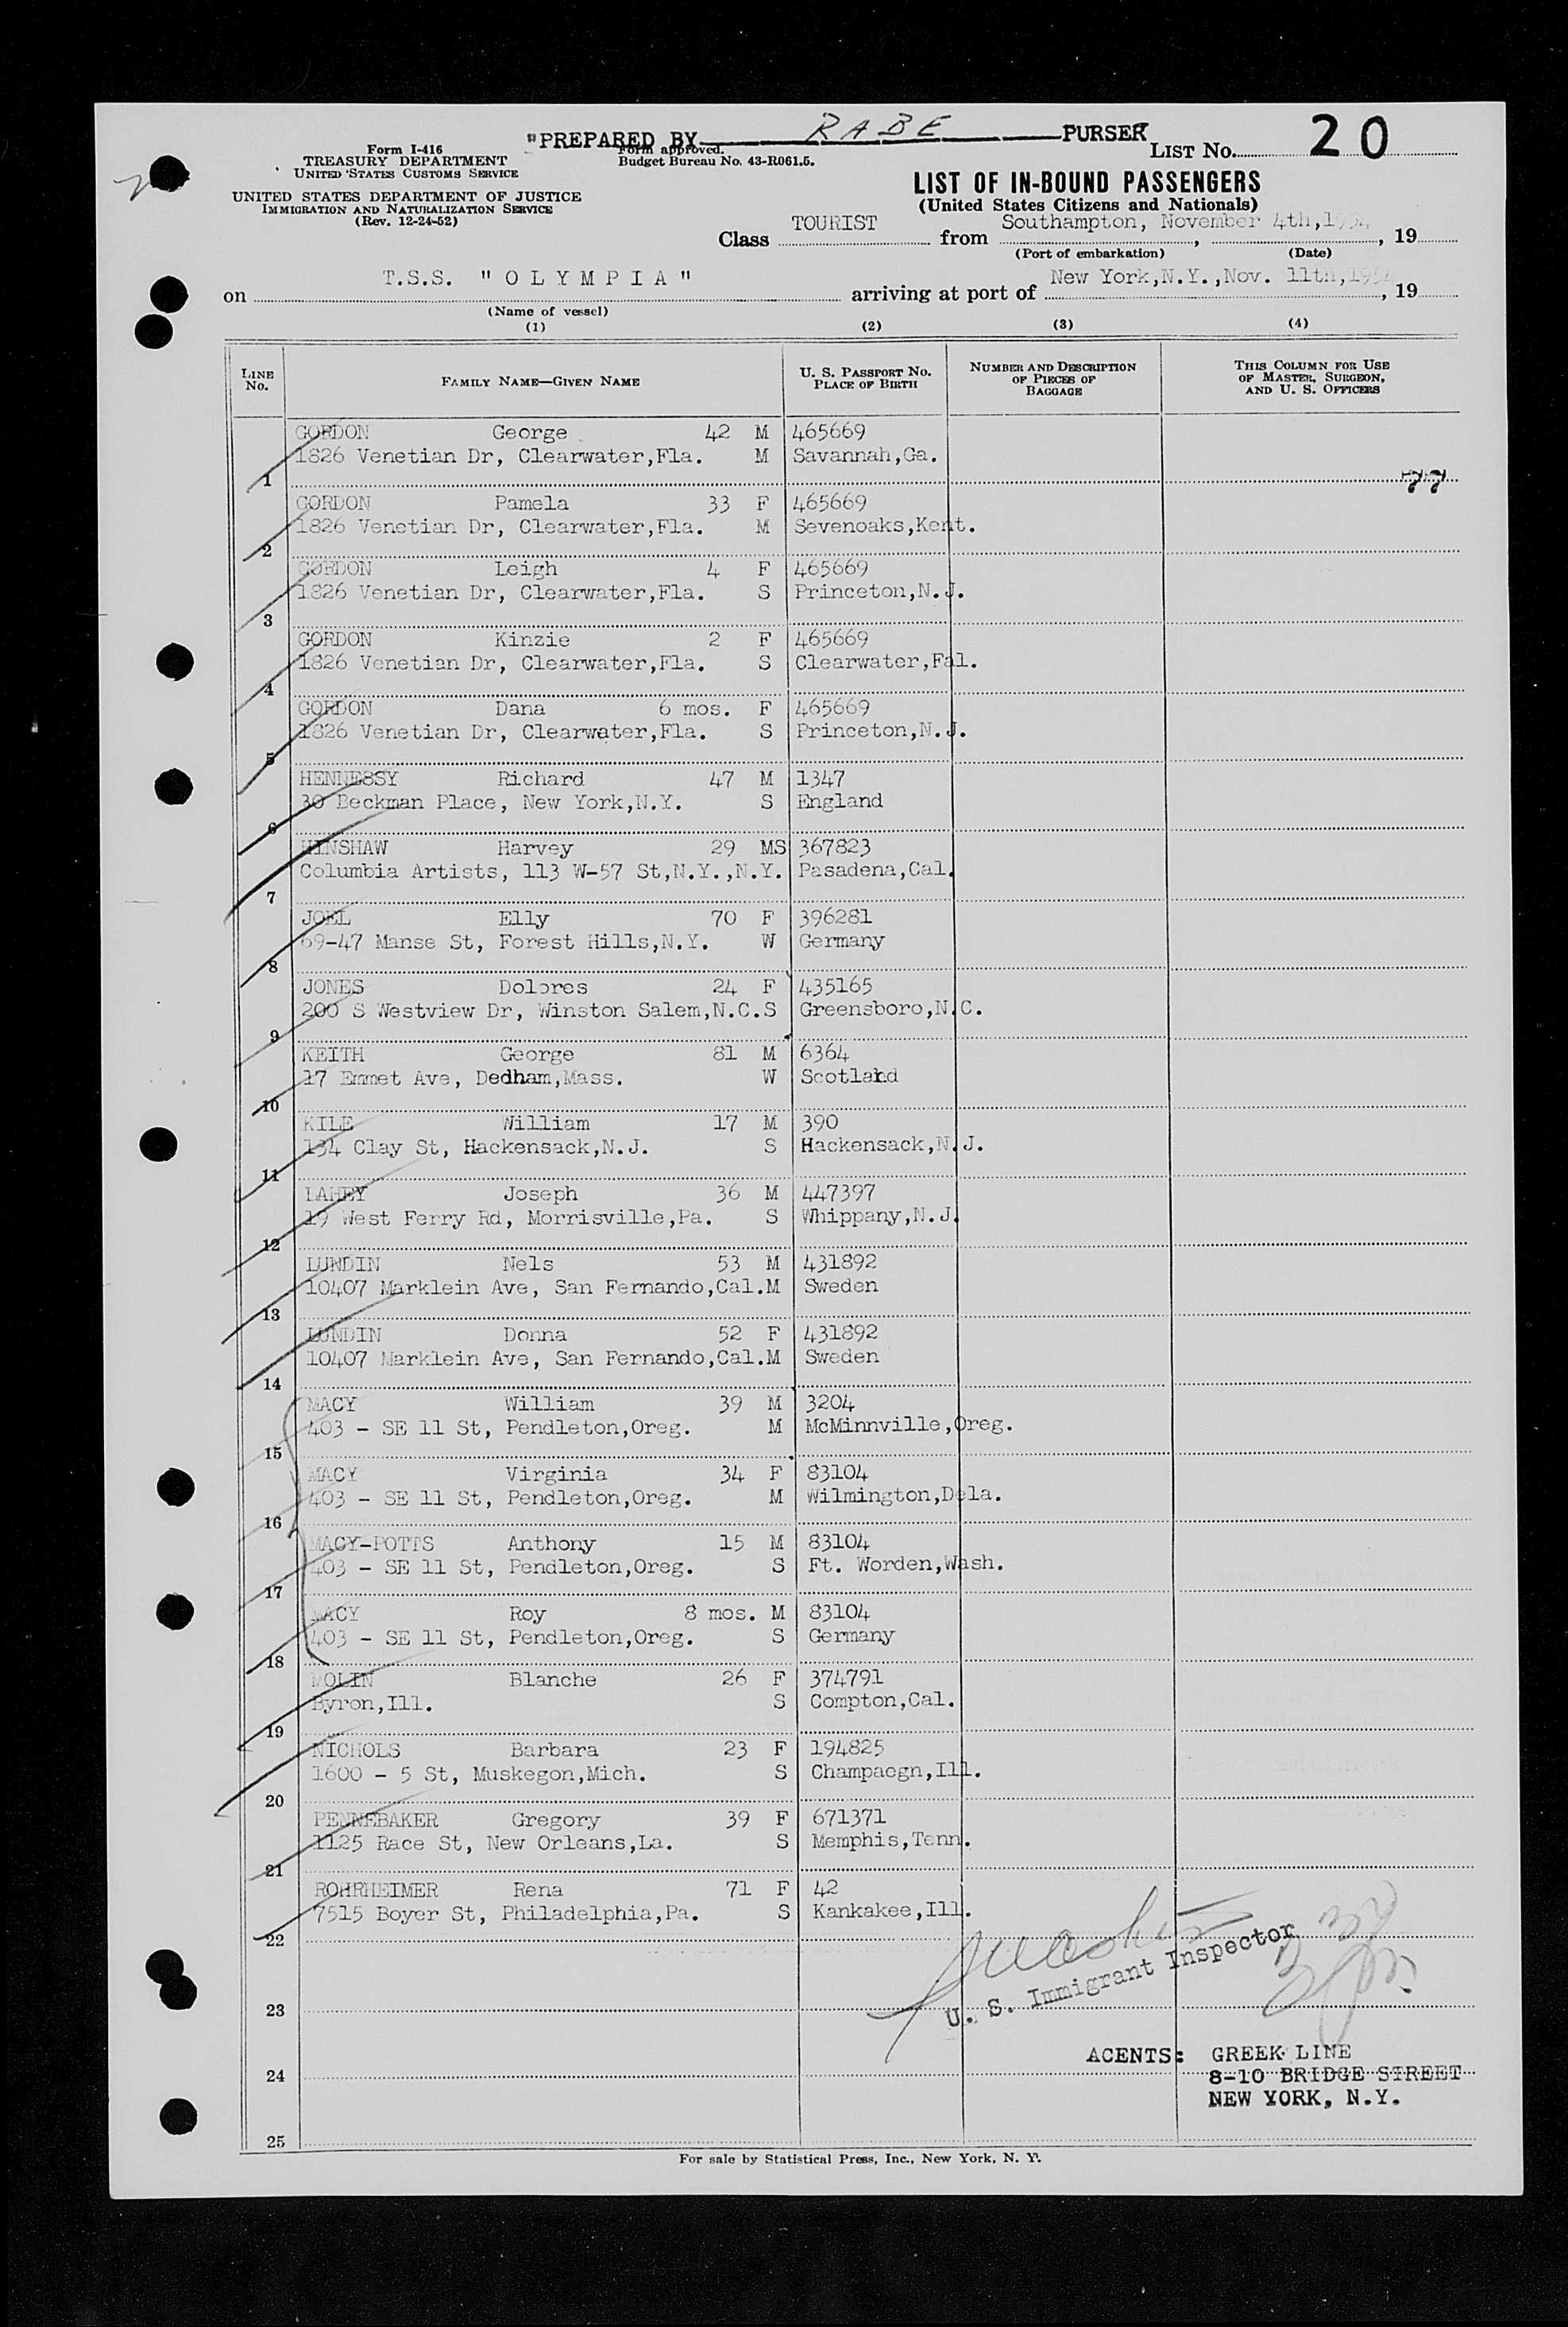 "PREPARED BY RABE PURSER
Form I-416
TREASURY DEPARTMENT
UNITED STATES CUSTOMS SERVICE
Form approved.
Budget Bureau No. 43-R061.5.
LIST No. 20
UNITED STATES DEPARTMENT OF JUSTICE
IMMIGRATION AND NATURALIZATION SERVICE
(Rev. 12-24-52)
LIST OF IN-BOUND PASSENGERS
(United States Citizens and Nationals)
Class TOURIST from Southampton, November 4th,1954, 19
(Port of embarkation) (Date)
on T.S.S. "OLYMPIA" arriving at port of New York,N.Y.,Nov. 11th,1954, 19
(Name of vessel)
(1) (2) (3) (4)
LINE No. FAMILY NAME—GIVEN NAME U. S. PASSPORT No. PLACE OF BIRTH NUMBER AND DESCRIPTION OF PIECES OF BAGGAGE THIS COLUMN FOR USE OF MASTER, SURGEON, AND U. S. OFFICERS
GORDON George 42 M 465669
1826 Venetian Dr, Clearwater,Fla. M Savannah,Ga.
1 77
GORDON Pamela 33 F 465669
1826 Venetian Dr, Clearwater,Fla. M Sevenoaks,Kent.
2
GORDON Leigh 4 F 465669
1826 Venetian Dr, Clearwater,Fla. S Princeton,N.J.
3
GORDON Kinzie 2 F 465669
1826 Venetian Dr, Clearwater,Fla. S Clearwater,Fal.
4
GORDON Dana 6 mos. F 465669
1826 Venetian Dr, Clearwater,Fla. S Princeton,N.J.
5
HENNESSY Richard 47 M 1347
30 Beckman Place, New York,N.Y. S England
6
HINSHAW Harvey 29 MS 367823
Columbia Artists, 113 W-57 St,N.Y.,N.Y. Pasadena,Cal.
7
JOEL Elly 70 F 396281
69-47 Manse St, Forest Hills,N.Y. W Germany
8
JONES Dolores 24 F 435165
200 S Westview Dr, Winston Salem,N.C.S Greensboro,N.C.
9
KEITH George 81 M 6364
17 Emmet Ave, Dedham,Mass. W Scotland
10
KILE William 17 M 390
134 Clay St, Hackensack,N.J. S Hackensack,N.J.
11
LAHEY Joseph 36 M 447397
19 West Ferry Rd, Morrisville,Pa. S Whippany,N.J.
12
LUNDIN Nels 53 M 431892
10407 Marklein Ave, San Fernando,Cal.M Sweden
13
LUNDIN Donna 52 F 431892
10407 Marklein Ave, San Fernando,Cal.M Sweden
14
MACY William 39 M 3204
403 - SE 11 St, Pendleton,Oreg. M McMinnville,Oreg.
15
MACY Virginia 34 F 83104
403 - SE 11 St, Pendleton,Oreg. M Wilmington,Dela.
16
MACY-POTTS Anthony 15 M 83104
403 - SE 11 St, Pendleton,Oreg. S Ft. Worden,Wash.
17
MACY Roy 8 mos. M 83104
403 - SE 11 St, Pendleton,Oreg. S Germany
18
MOLIN Blanche 26 F 374791
Byron,Ill. S Compton,Cal.
19
NICHOLS Barbara 23 F 194825
1600 - 5 St, Muskegon,Mich. S Champaegn,Ill.
20
PENNEBAKER Gregory 39 F 671371
1125 Race St, New Orleans,La. S Memphis,Tenn.
21
ROHRHEIMER Rena 71 F 42
7515 Boyer St, Philadelphia,Pa. S Kankakee,Ill.
22
U. S. Immigrant Inspector
23
AGENTS: GREEK LINE
24
8-10 BRIDGE STREET
NEW YORK, N.Y.
25
For sale by Statistical Press, Inc., New York, N. Y.